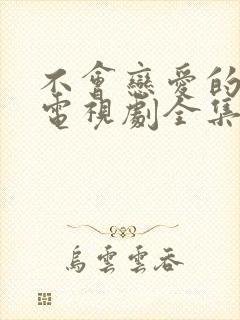 不會戀愛的
電視劇全集
烏雲雲吞